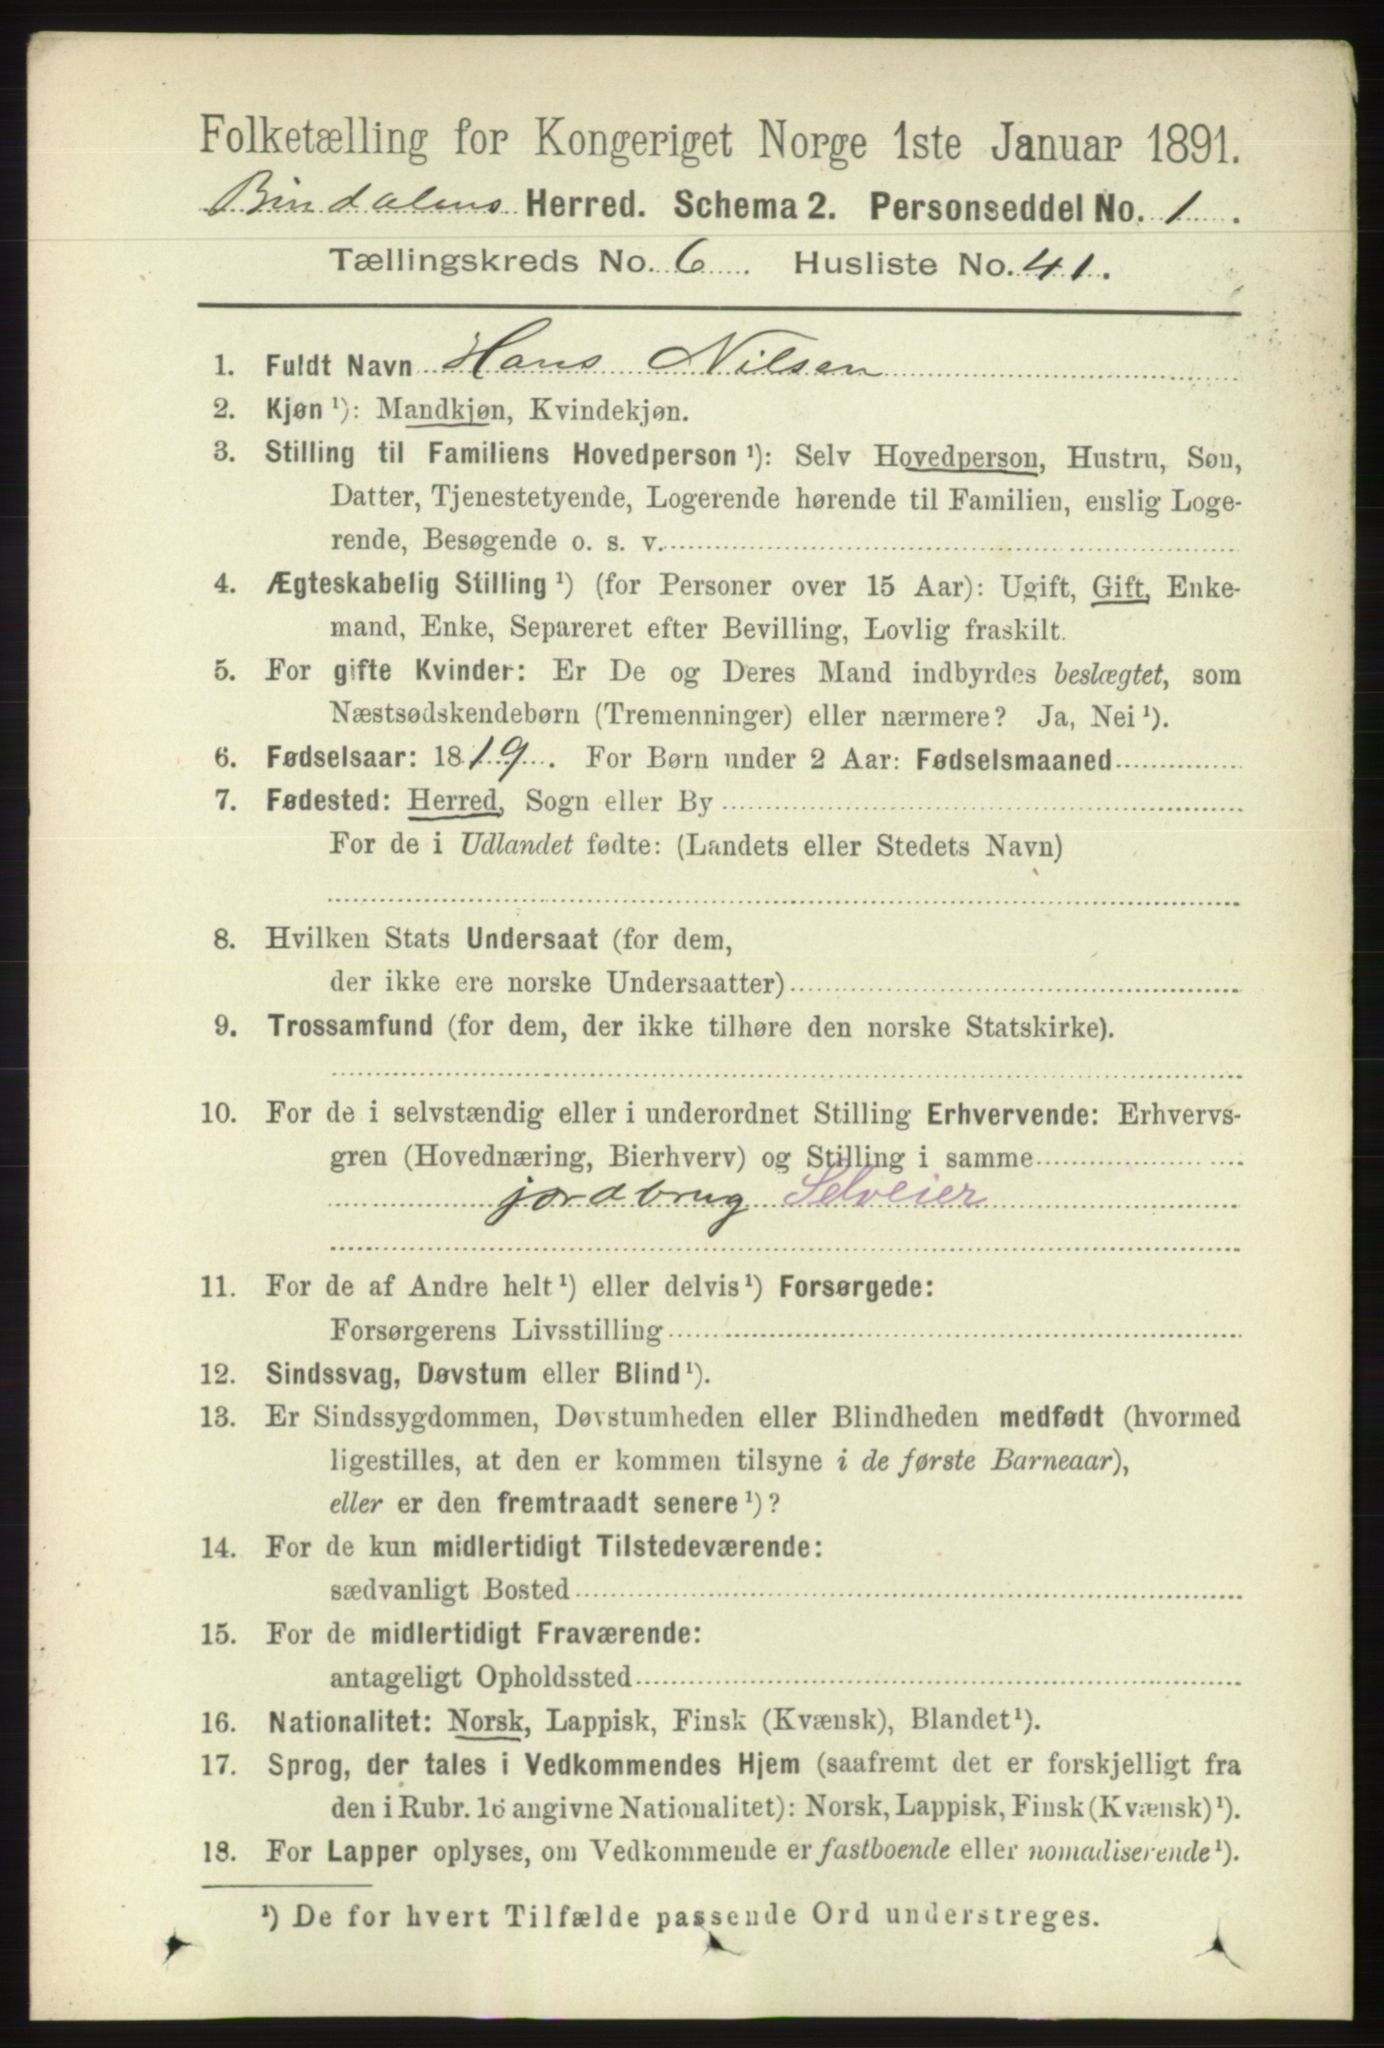 Folketælling for Kongeriget Norge 1ste Januar 1891.
Bindalens Herred. Schema 2. Personseddel No. 1.
Tællingskreds No. 6. Husliste No. 41.
1. Fuldt Navn Hans Nilsen
2. Kjøn ¹): Mandkjøn, Kvindekjøn.
3. Stilling til Familiens Hovedperson ¹): Selv Hovedperson, Hustru, Søn,
Datter, Tjenestetyende, Logerende hørende til Familien, enslig Loge-
rende, Besøgende o. s. v.
4. Ægteskabelig Stilling ¹) (for Personer over 15 Aar): Ugift, Gift, Enke-
mand, Enke, Separeret efter Bevilling, Lovlig fraskilt.
5. For gifte Kvinder: Er De og Deres Mand indbyrdes beslægtet, som
Næstsødskendebørn (Tremenninger) eller nærmere? Ja, Nei ¹).
6. Fødselsaar: 1819. For Børn under 2 Aar: Fødselsmaaned
7. Fødested: Herred, Sogn eller By
For de i Udlandet fødte: (Landets eller Stedets Navn)
8. Hvilken Stats Undersaat (for dem,
der ikke ere norske Undersaatter)
9. Trossamfund (for dem, der ikke tilhøre den norske Statskirke).
10. For de i selvstændig eller i underordnet Stilling Erhvervende: Erhvervs-
gren (Hovednæring, Bierhverv) og Stilling i samme
jordbrug Selveier
11. For de af Andre helt ¹) eller delvis ¹) Forsørgede:
Forsørgerens Livsstilling
12. Sindssvag, Døvstum eller Blind ¹).
13. Er Sindssygdommen, Døvstumheden eller Blindheden medfødt (hvormed
ligestilles, at den er kommen tilsyne i de første Barneaar),
eller er den fremtraadt senere ¹)?
14. For de kun midlertidigt Tilstedeværende:
sædvanligt Bosted
15. For de midlertidigt Fraværende:
antageligt Opholdssted
16. Nationalitet: Norsk, Lappisk, Finsk (Kvænsk), Blandet ¹).
17. Sprog, der tales i Vedkommendes Hjem (saafremt det er forskjelligt fra
den i Rubr. 16 angivne Nationalitet): Norsk, Lappisk, Finsk (Kvænsk) ¹).
18. For Lapper oplyses, om Vedkommende er fastboende eller nomadiserende ¹).
¹) De for hvert Tilfælde passende Ord understreges.